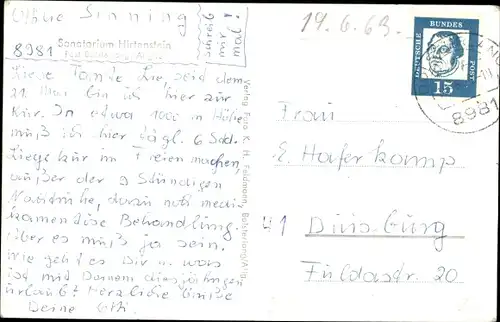 Ottilie Sinning
schreib
nun
mal!
Sanatorium Hirtenstein
8981
Liebe Tante Lie, seit dem
21. Mai bin ich hier zur
Kur. In etwa 1000 m Höhe
muß ich hier tägl. 6 Std.
Liegekur im Freien machen,
außer der 9 stündigen
Nachtruhe, dazu noch medi-
kamentöse Behandlung.
Aber es muß ja sein.
Wie geht es Dir u. was
ist mit Deinem diesjährigen
Urlaub? Herzliche Grüße
Deine Otti.
Verlag Foto K. H. Feldmann, Bolsterlang/Allg.
19.6.63.
DEUTSCHE BUNDESPOST
15
8981
Frau
E. Haferkamp
41 Duisburg
Fuldastr. 20